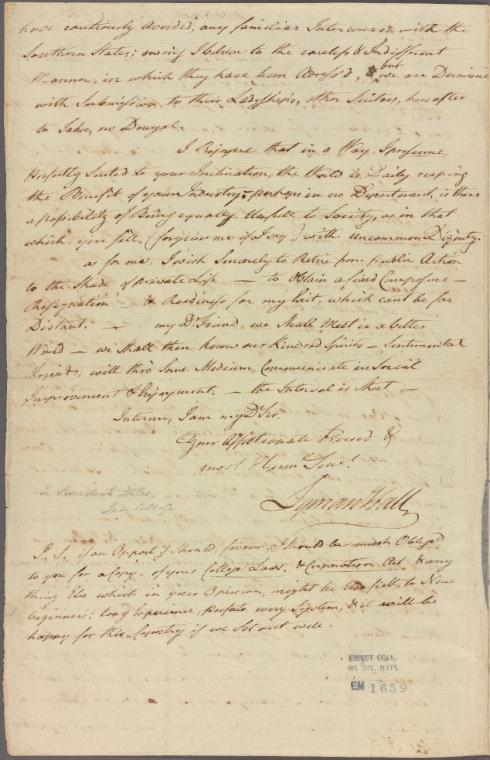 have cautiously avoided, any familiar Intercourse with the
Southern States; owing I believe to the careless & Indifferent
Manner, in which they have been Address'd, but we are Determined
with Submission to their Ladyships, other Suitors, hereafter
to take, no Denyal.
I Rejoyce that in a Way, I presume,
Perfectly Suited to your Inclination, the World is Daily reaping
the Benefit of your Industry, perhaps in no Department, is there
a possibility of Being equally Usefull to Society, as in that
which, you fill, (forgive me if I say) with Uncommon Dignity.
as for me, I wish Sincerely to Retire from public Action
to the Shade of private Life — to Obtain a fixed Composure —
Resignation & Readiness for my Exit, which cant be far
Distant. — my Dr. Friend, we Shall Meet in a better
World — we Shall then Know our Kindred Spirits — Sentimental
Friends, will thro' Some Medium, Communicate in Social
Improvement & Enjoyment. — the Interval is Short —
Interim, I am my Dr. Sir.
Your Affectionate Friend &
most Obedt Servt.
Lyman Hall
To President Stiles
Yale College
P.S. if an Oppory. Should, favour, I should be much Oblig'd
to you for a Copy of your College Laws, & Corporation Act, & any
thing Else which in your Opinion, might be Usefull, to New
beginners; long Experience, every System, & it will be
happy for this Country if we Set out well.
EMMET COLL.
MS. DIV. NYPL
EM 1659